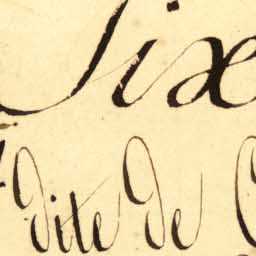 Six
dite de